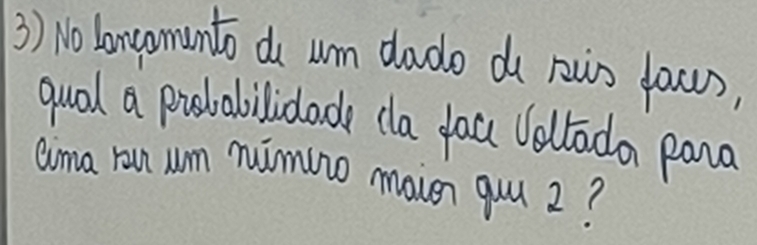 3) No lançamento de um dado de seis faces,
qual a probabilidade da face voltada para
cima ser um número maior que 2?